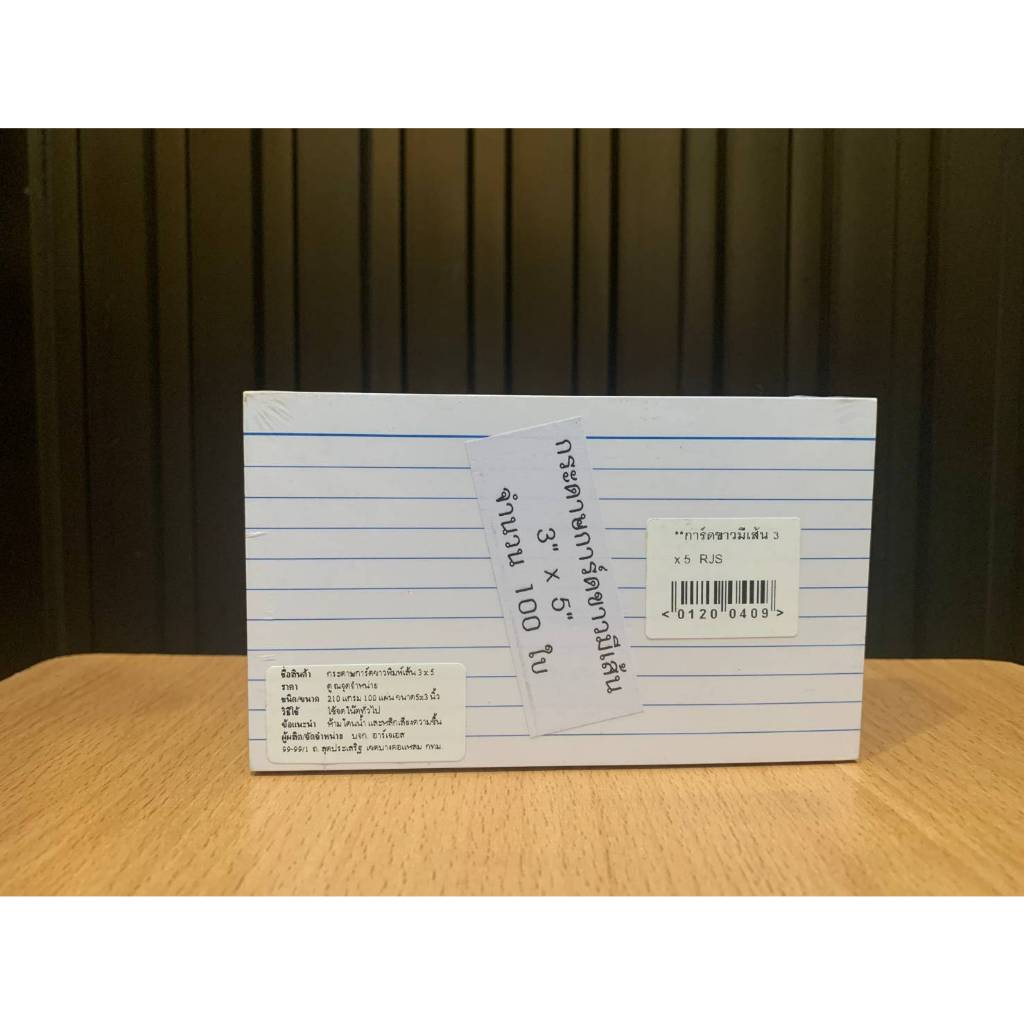 กระดาษการ์ดขาวมีเส้น
3" x 5"
จำนวน 100 ใบ
**การ์ดขาวมีเส้น 3
x 5 RJS
<0120 0409>
ชื่อสินค้า กระดาษการ์ดขาวพิมพ์เส้น 3 x 5
ราคา ดู ณจุดจำหน่าย
ชนิด/ขนาด 210 แกรม 100 แผ่น ขนาด5x3 นิ้ว
วิธีใช้ ใช้จดโน๊ตทั่วไป
ข้อแนะนำ ห้ามโดนน้ำ และหลีกเลี่ยงความชื้น
ผู้ผลิต/จัดจำหน่าย บจก. อาร์เจเอส
99-99/1 ถ. สุดประเสริฐ เขตบางคอแหลม กทม.